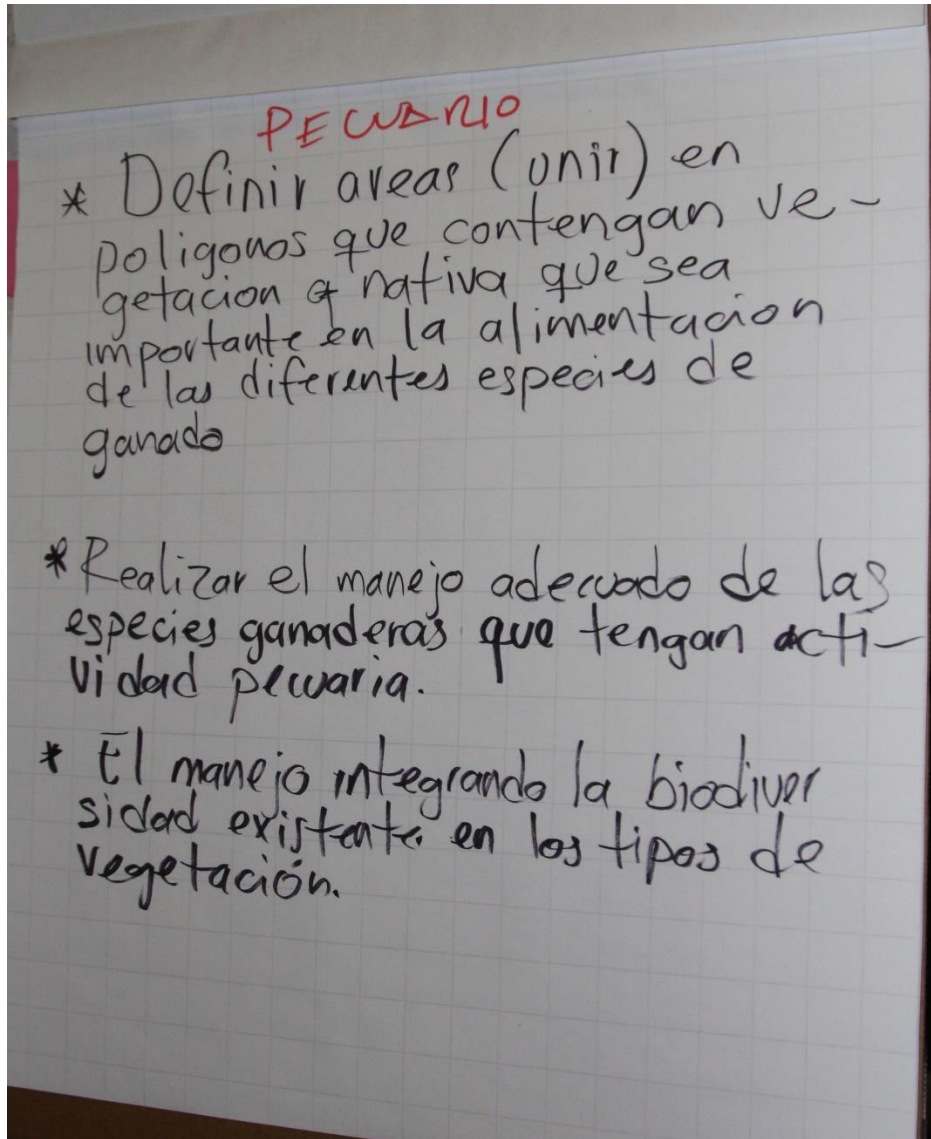 PECUARIO
* Definir areas (unir) en
poligonos que contengan ve-
getacion nativa que sea
importante en la alimentacion
de las diferentes especies de
ganado
* Realizar el manejo adecuado de las
especies ganaderas que tengan acti-
vidad pecuaria.
* El manejo integrando la biodiver
sidad existente en los tipos de
vegetación.